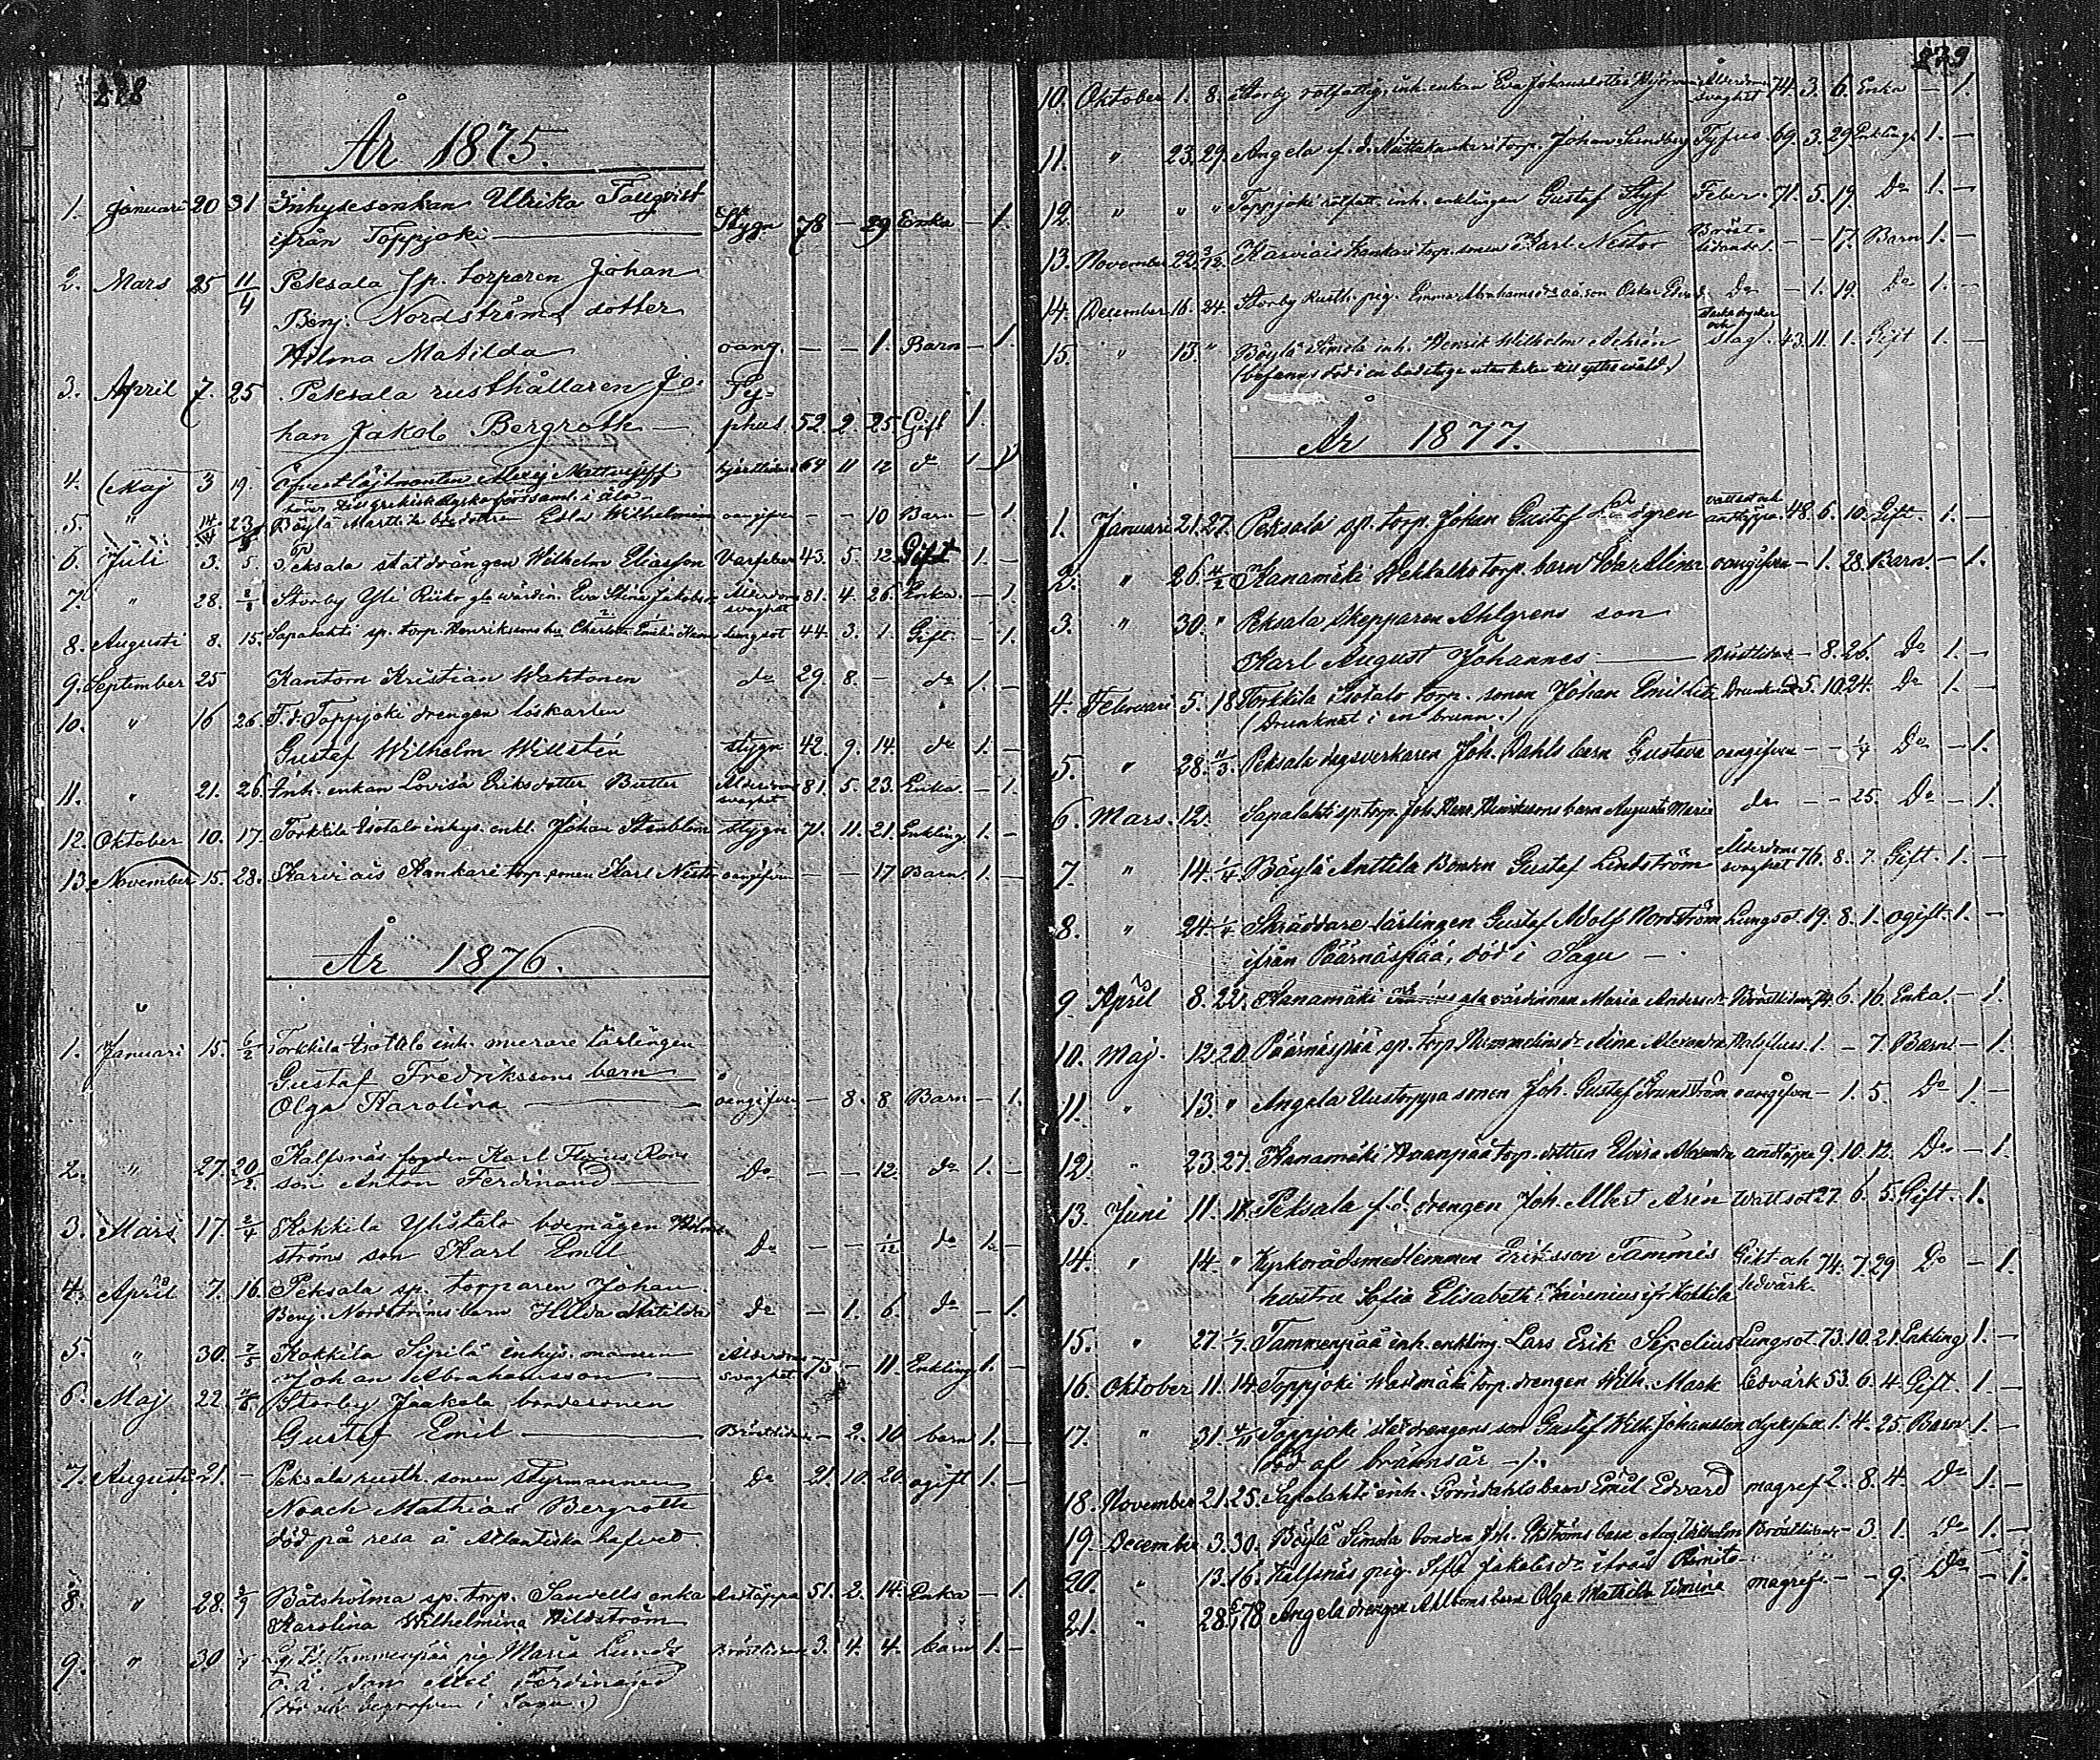 278
År 1875.
1. Januari 20 31 Inhysesenkan Ulrika Tallqvist
ifrån Toppjoki Stygn 78 — 29 Enka — 1.
2. Mars 25 11/4 Peksala sp. torparen Johan
Benj. Nordströms dotter
Hilma Matilda oang. — — 1. Barn — 1.
3. April 7. 25 Peksala rusthållaren Jo- Ty-
han Jakob Bergroth — phus 52 2. 25. Gift 1.
4. Maj 3 19. Öfverstlöjtnanten Alexej 64 11 12 do 1
5. " 23 Böylä Marttila dottren Edla Wilhelmina oangifven — — 10 Barn — 1
6. Juli 3. 5. Peksala statdrängen Wilhelm Eliasson 43. 5. 12 Gift 1. —
7. " 28. Storby Yli Eva Stina Ålderdoms svaghet 81. 4. 26. Enka. — 1
8. Augusti 8. 15. Sapalahti sp. torp. Henrikssons lungsot 44. 3. 1. Gift — 1.
9. September 25 Kantorn Kristian Wahtonen do 29. 8. — do 1. —
10. " 16 26. F.d. Toppjoki drengen löskarlen
Gustaf Wilhelm Willstén stygn 42. 9. 14. do 1. —
11. " 21. 26. Inh. enkan Lovisa Eriksdotter Butter Ålderdoms svaghet 81. 5. 23. Enka — 1.
12. Oktober 10. 17. Torkkila Isotalo inhys. enkl. Johan Stenblom stygn 71. 11. 21. Enkling 1. —
13. November 15. 28. Karviais Kankari torp. sonen Karl Nestor oangifven — — 17 Barn 1. —
År 1876.
1. Januari 15. 6/2 Torkkila Isotalo inh. murare lärlingen
Gustaf Fredrikssons barn
Olga Karolina — oangifven — 8. 8 Barn — 1.
2. " 27. 20/2. Kalfsnäs fogden Karl Roos
son Anton Ferdinand — Do — — 12. do 1. —
3. Mars 17. 2/4 Kokkila Ylistalo
ströms son Karl Emil Do — — 1/12 do 1. —
4. April 7. 16. Peksala sp. torparen Johan
Benj. Nordströms barn Hilda Matilda do — 1. 6. do — 1.
5. " 30. 7/5 Kokkila Sipilä inhys. mannen
Johan Abrahamsson — Ålderdoms svaghet 75. — 11. Enkling 1. —
6. Maj 22. Storby Jaakola bondesonen
Gustaf Emil — Bröstlidande — 2. 10. barn 1. —
7. Augusti 21. — Peksala rusth. sonen Styrmannen Do 21. 10. 20. ogift 1. —
Noach Mathias Bergroth
död på resa å Atlantiska hafvet.
8. " 28. Båtsholma sp. torp. enka Andtäppa 51. 2. 14. Enka — 1.
Karolina Wilhelmina Wildström
9. " 30. Tammenpää pig. Maria Bröstlidande 3. 4. 4. barn 1. —
o.ä. son Axel Ferdinand
(död och begrafven i Sagu.)
279
10. Oktober 1. 8. Storby rotfattig. inh. enkan Eva Johansdotter Ålderdoms svaghet 74. 3. 6. Enka — 1.
11. " 23. 29. Angela f.d. torp. Johan Sundberg Tyfus 69. 3. 29. Enkling 1. —
12. " " " Toppjoki rotfatt. inh. enklingen Gustaf Feber 71. 5. 19. Do 1. —
13. November 22. 3/12. Karviais Kankari torp. sonen Karl Nestor Bröst- lidande — — 17. Barn 1. —
14. December 16. 24. Storby Rusth. pig. Emma oä. son Oskar Do — 1. 19. Do 1. —
15. " 13. " Böylä Simola inh. Henrik Wilhelm slag. 43. 11. 1. Gift 1. —
År 1877.
1. Januari 21. 27. Peksala sp. torp. Johan Gustaf vattsot och andtäppa 48. 6. 10. Gift 1. —
2. " 26. 4/2 Kanamäki torp. barn oangifven — 1. 28. Barn — 1.
3. " 30. " Peksala Skepparen Ahlgrens son
Karl August Johannes — Bröstlidande — 8. 26. Do 1. —
4. Februari 5. 18. Torkkila Isotalo torp. sonen Johan Emil Drunknad 5. 10. 24. Do 1. —
(Drunknat i en brunn.)
5. " 28. 4/3. Peksala dagsverkaren Joh. Dahls barn Gustava oangifven — — 1/4 Do — 1.
6. Mars. 12. Sapalahti sp. torp. Joh. Henrikssons barn Augusta Maria do — — 25. Do — 1.
7. " 14. 1/4. Böylä Anttila Bonden Gustaf Lindström Ålderdoms svaghet 76. 8. 7. Gift. 1. —
8. " 24. 1/4 Skräddare lärlingen Gustaf Adolf Nordström Lungsot. 19. 8. 1. ogift. 1. —
ifrån Päärnäspää, död i Sagu —
9. April 8. 22. Kanamäki värdinnan Maria Andersdr Bröstlidande 74. 6. 16. Enka. — 1.
10. Maj. 12. 20. Päärnäspää sp. torp. Alina Alexandra 1. — 7. Barn — 1.
11. " 13. " Angela Uustorppa sonen Joh. Gustaf Grundström oangifven — 1. 5. Do 1. —
12. " 23. 27. Kanamäki Haanpää torp. dottren Elvira Alexandra andtäppa 9. 10. 12. Do — 1.
13. Juni 11. 17. Peksala f.d. drengen Joh. Albert Arén Wattsot 27. 6. 5. Gift. 1.
14. " 14. " Kyrkorådsmedlemmen Eriksson Tammis Gikt och ledvärk. 74. 7. 29 Do — 1.
hustru Sofia Elisabeth Kokkila
15. " 27. 1/7. Tammenpää inh. enkling. Lars Erik Sipelius Lungsot. 73. 10. 21. Enkling 1. —
16. Oktober 11. 14. Toppjoki torp. drengen Wilh. Mark Ledvärk 53. 6. 4. Gift. 1. —
17. " 31. 4/11 Toppjoki statdrengens son Gustaf Wilh. Johansson olycksfall 1. 4. 25. Barn 1. —
(död af brännsår —).
18. November 21. 25. Sapalahti inh. Gröndahls barn Emil Edvard magref 2. 8. 4. Do 1. —
19. December 3. 30. Böylä Simola bonden Joh. Ekströms barn Aug. Wilhelm Bröstlidande — 3. 1. Do 1. —
20. " 13. 16. Kalfsnäs pig. Jakobsdr ifrån Rimito —
21. " 28. 78 Angela drengen Ahlboms barn Olga Mathilda magref. — — 9. Do — 1.